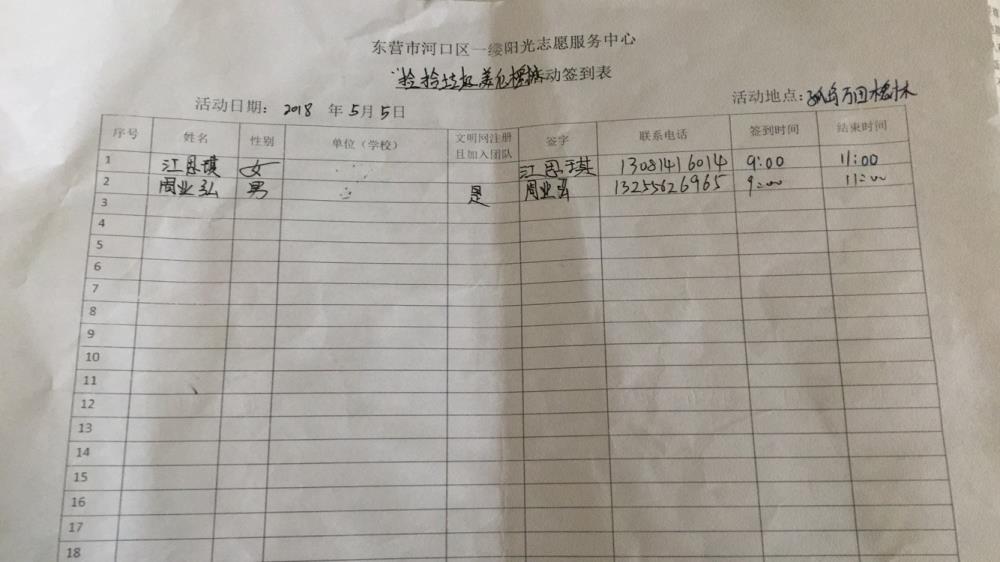 东营市河口区一缕阳光志愿服务中心
“捡拾垃圾美化槐林活动签到表
活动日期: 2018 年 5 月 5 日 活动地点: 孤岛万亩槐林
序号 姓名 性别 单位（学校） 文明网注册且加入团队 签字 联系电话 签到时间 结束时间
1 江恩琪 女 江恩琪 13081416014 9:00 11:00
2 周业弘 男 是 周业弘 13255626965 9:00 11:00
3
4
5
6
7
8
9
10
11
12
13
14
15
16
17
18